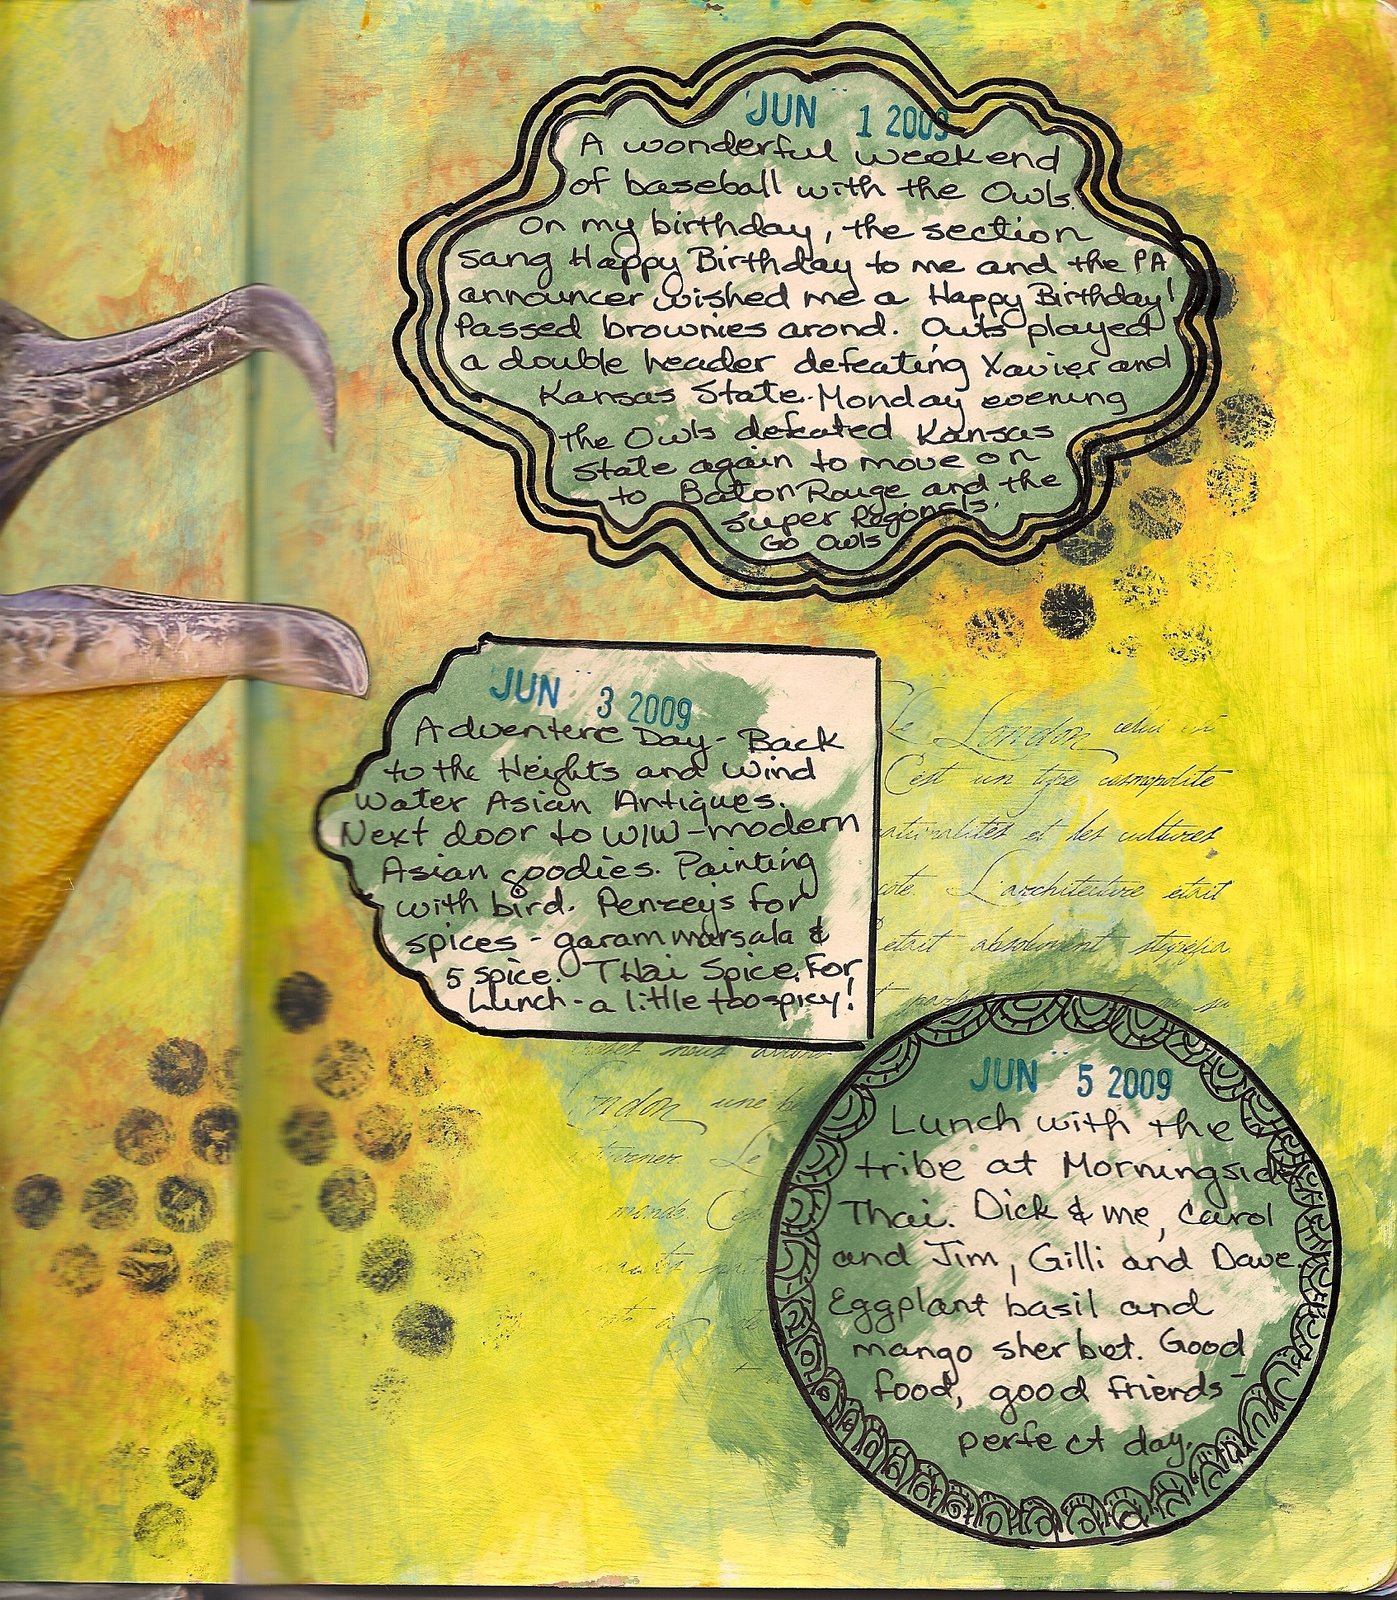 JUN 1 2009
A wonderful weekend
of baseball with the Owls.
On my birthday, the section
sang Happy Birthday to me and the PA
announcer wished me a Happy Birthday!
Passed brownies arond. Owls played
a double header defeating Xavier and
Kansas State. Monday evening
the Owls defeated Kansas
State again to move on
to Baton Rouge and the
Super Regionals.
Go Owls
JUN 3 2009
Adventure Day - Back
to the Heights and Wind
Water Asian Antiques.
Next door to W/W - modern
Asian goodies. Painting
with bird. Penzeys for
spices - garam marsala &
5 spice. THai Spice. For
Lunch - a little too spicy!
Le London celui
C'est un type cosmopolite
et les cultures,
L'architecture était
était absolument
nous avons
une
Le
monde.
JUN 5 2009
Lunch with the
tribe at Morningside
Thai. Dick & me, Carol
and Jim, Gilli and Dave.
Eggplant basil and
mango sherbet. Good
food, good friends -
perfect day.